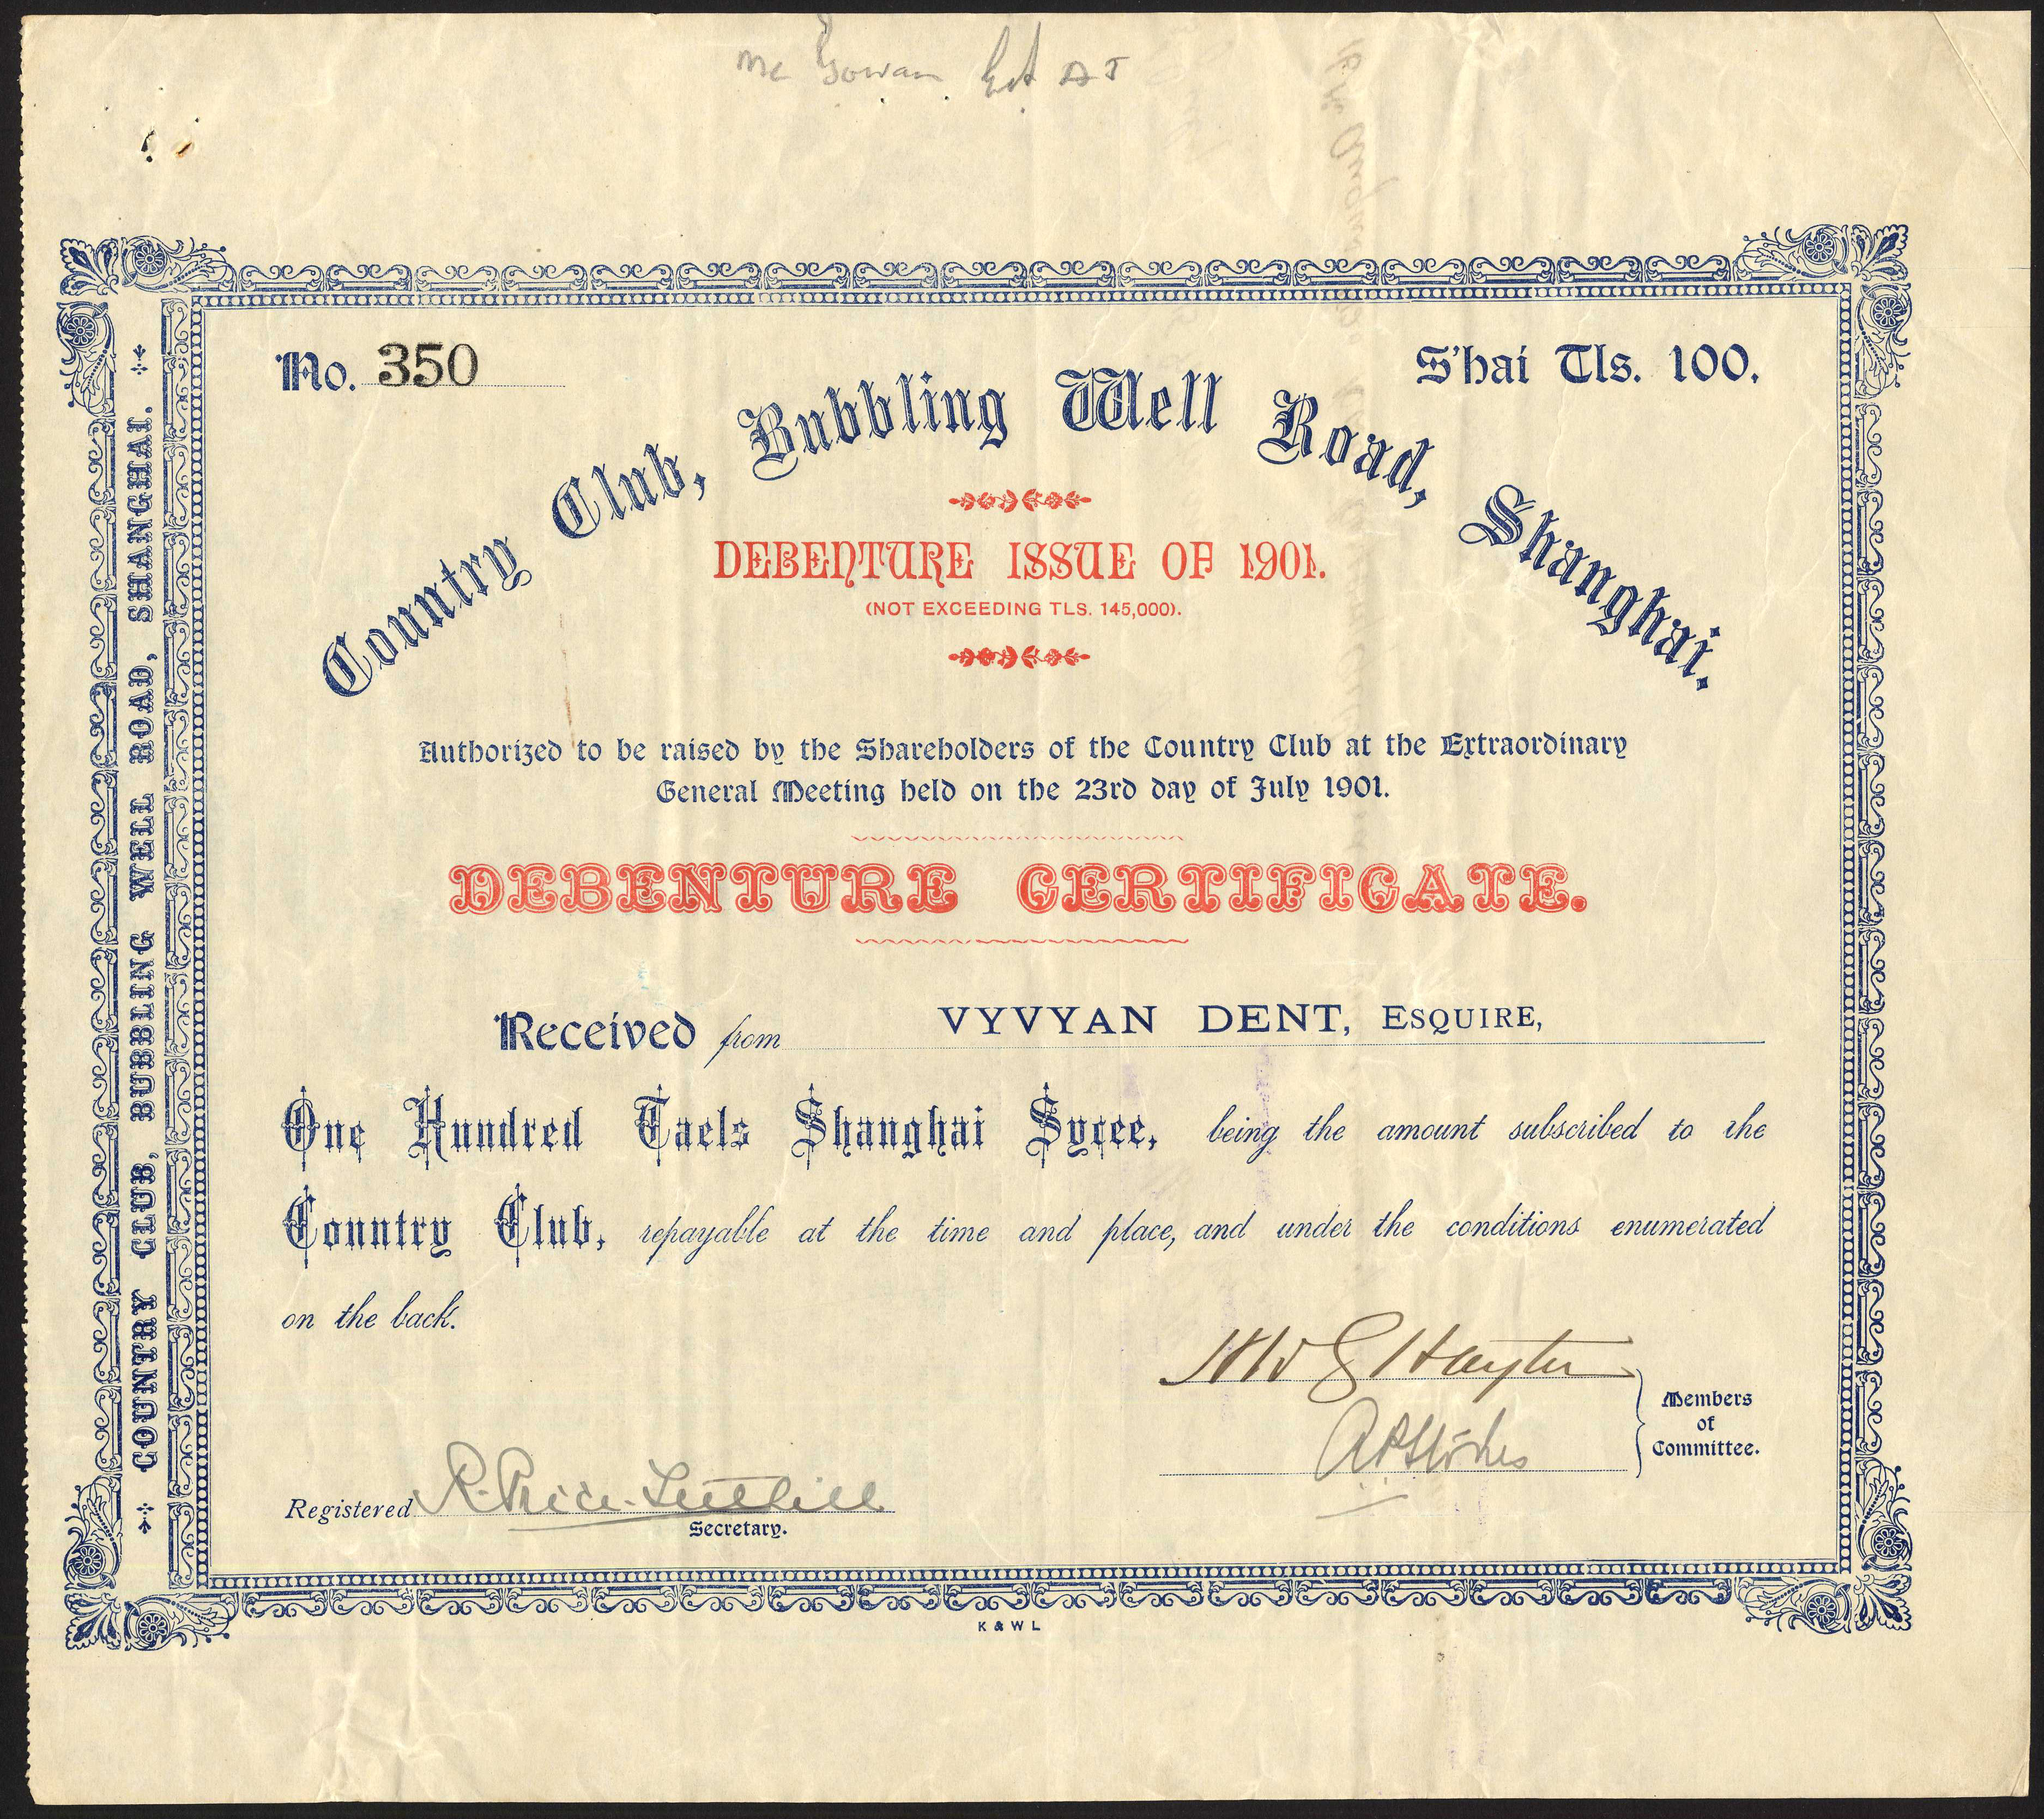 Mc Gowan Est A J
No. 350
S'hai Tls. 100.
Country Club, Bubbling Well Road, Shanghai.
DEBENTURE ISSUE OF 1901.
(NOT EXCEEDING TLS. 145,000).
Authorized to be raised by the Shareholders of the Country Club at the Extraordinary
General Meeting held on the 23rd day of July 1901.
DEBENTURE CERTIFICATE.
Received from VYVYAN DENT, ESQUIRE,
One Hundred Taels Shanghai Sycee, being the amount subscribed to the
Country Club, repayable at the time and place, and under the conditions enumerated
on the back.
Hayter
Members
of
Committee.
A P Stokes
Registered R. Price-Tuthill
Secretary.
K & W L
COUNTRY CLUB, BUBBLING WELL ROAD, SHANGHAI.